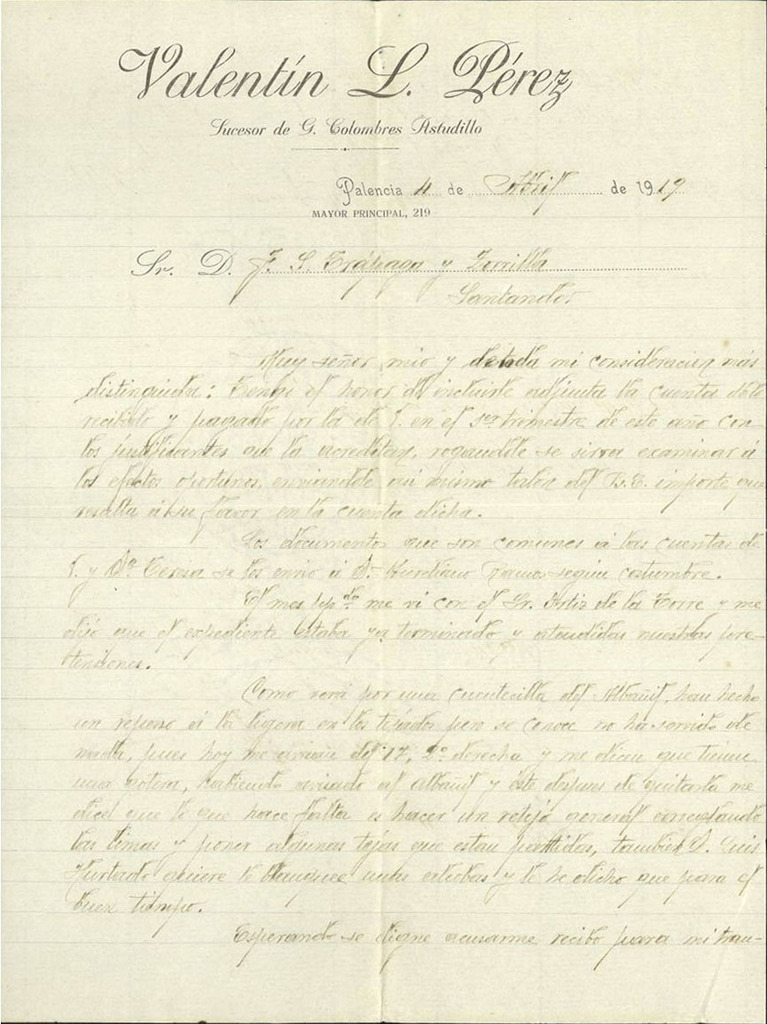 Valentín L. Pérez
Sucesor de G. Colombres Astudillo
Palencia 4 de Abril de 1919
MAYOR PRINCIPAL, 219
Sr. D. F. S. Trápaga y Zorrilla
Santander
Muy señor mio y de toda mi consideracion más
distinguida: Tengo el honor de incluirle adjunta la cuenta de lo
recibido y pagado por la de V. en el 1er trimestre de este año con
los justificantes que la acreditan, rogandole se sirva examinar á
los efectos oportunos, enviandole asi mismo talón del B. E. importe que
resulta á su favor en la cuenta dicha.
Los documentos que son comunes á las cuentas de
V. y Dª Teresa se los envio á D. Aureliano según costumbre.
El mes ppdo me ví con el Sr. Ortiz de la Torre y me
dijo que el expediente estaba ya terminado y atendidas nuestras pre-
tensiones.
Como verá por una cuentecilla del Albañil, han hecho
un repaso á la ligera en los tejados pero se conoce no ha servido de
nada, pues hoy me avisan del 17, 2º derecha y me dicen que tienen
una gotera, habiendo avisado al albañil y éste despues de quitarla me
dice que lo que hace falta es hacer un retejo general arreglando
las limas y poner algunas tejas que estan partidas, tambien D. Luis
Hurtado quiere le blanquee unas alcobas y le he dicho que para el
buen tiempo.
Esperando se digne acusarme recibo para mi tran-